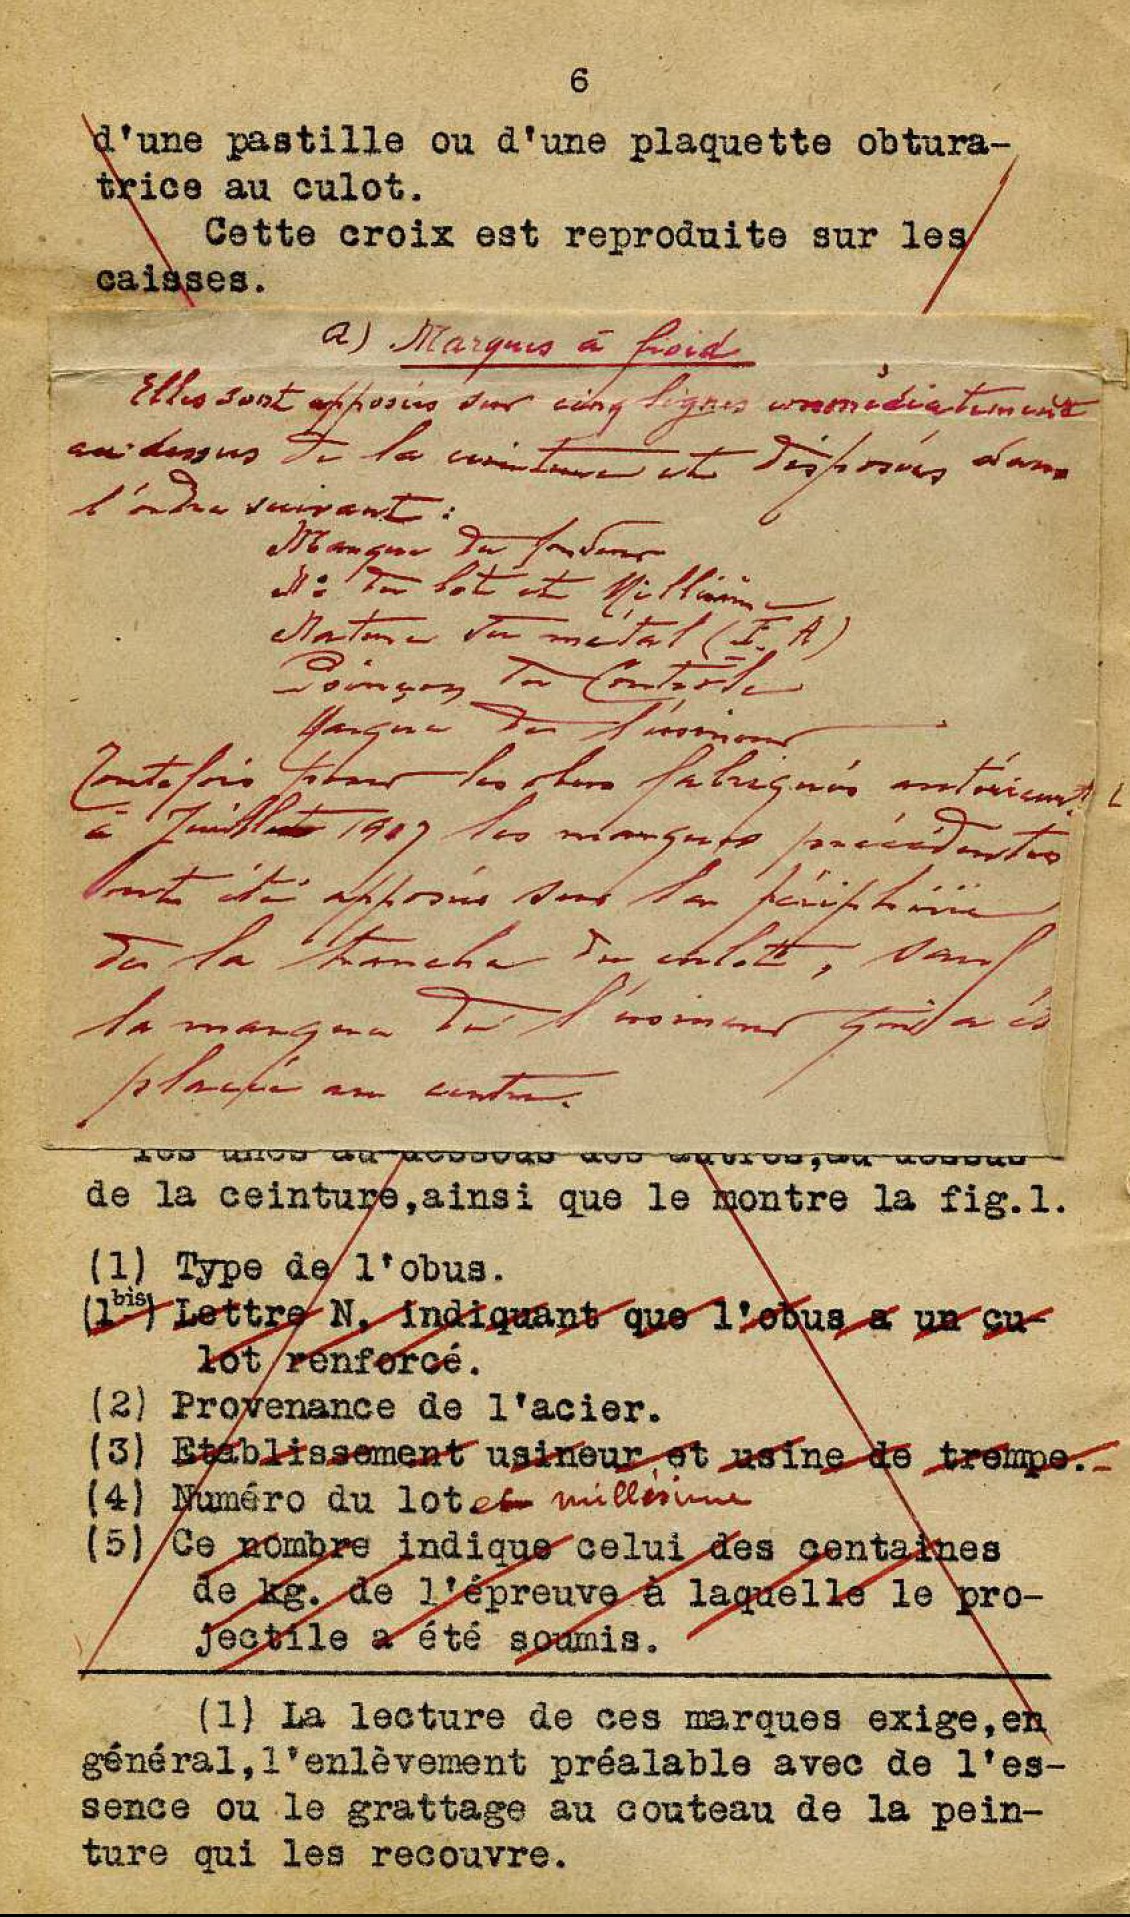 6
d'une pastille ou d'une plaquette obtura-
trice au culot.
Cette croix est reproduite sur les
caisses.
a) Marques à froid
Elles sont apposées sur cinq lignes immédiatement
au-dessus de la ceinture et disposées dans
l'ordre suivant :
Marque du fondeur
No du lot et Millésime
Nature du métal (F. A)
Poinçon du Contrôle
Marque de l'usineur
Toutefois pour les obus fabriqués antérieurt
à Juillet 1917 les marques précédentes
ont été apposées sur la périphérie
de la tranche du culot, sauf
la marque de l'usineur qui a été
placée au centre.
les unes au dessous des autres, au dessus
de la ceinture,ainsi que le montre la fig.1.
(1) Type de l'obus.
(1bis) Lettre N, indiquant que l'obus a un cu-
lot renforcé.
(2) Provenance de l'acier.
(3) Etablissement usineur et usine de trempe.
(4) Numéro du lot et millésime
(5) Ce nombre indique celui des centaines
de kg. de l'épreuve à laquelle le pro-
jectile a été soumis.
(1) La lecture de ces marques exige,en
général,l'enlèvement préalable avec de l'es-
sence ou le grattage au couteau de la pein-
ture qui les recouvre.